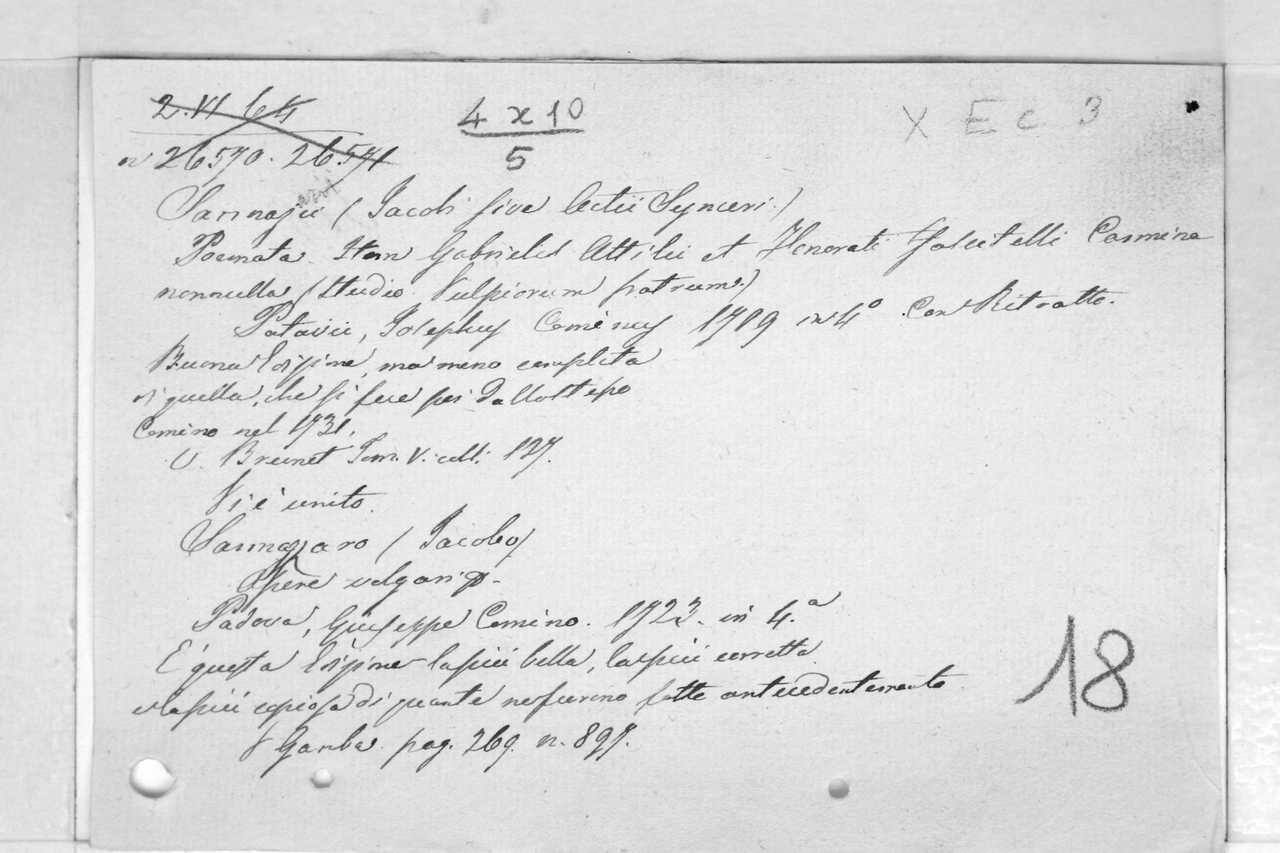 2.VI 64
4 x 10
X E c 3
n 26570. 26571
5
Sannazarii (Jacobi sive Actii Synceri.)
Poemata. Item Gabrielis Attilii et Honorati Fascitelli Carmina
nonnulla (studio Vulpiorum fratrum.)
Patavii, Josephus Cominus 1719 in 4º Con Ritratto.
Buona Edizione, ma meno completa
di quella, che si fece poi dallo stesso
Comino nel 1731.
V. Brunet Tom. V. coll. 127.
Vi è unito.
Sannazaro (Jacobo)
Opere volgari
Padova, Giuseppe Comino. 1723. in 4.º
È questa Edizione la più bella, la più corretta
e la più copiosa di quante ne furono fatte antecedentemente
V Gamba. pag. 269. n. 897.
18